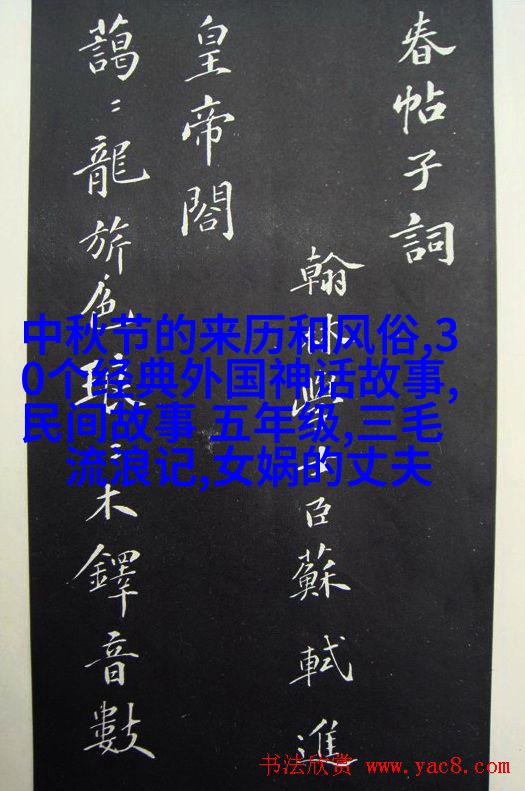 春帖子詞
翰林學士臣蘇軾進
皇帝閤
藹〻龍旂色琅〻木鐸音數
中秋节的来历和风俗,3
0个经典外国神话故事,
民间故事 五年级,三毛
流浪记,女娲的丈夫
书法欣赏 www.yac8.com